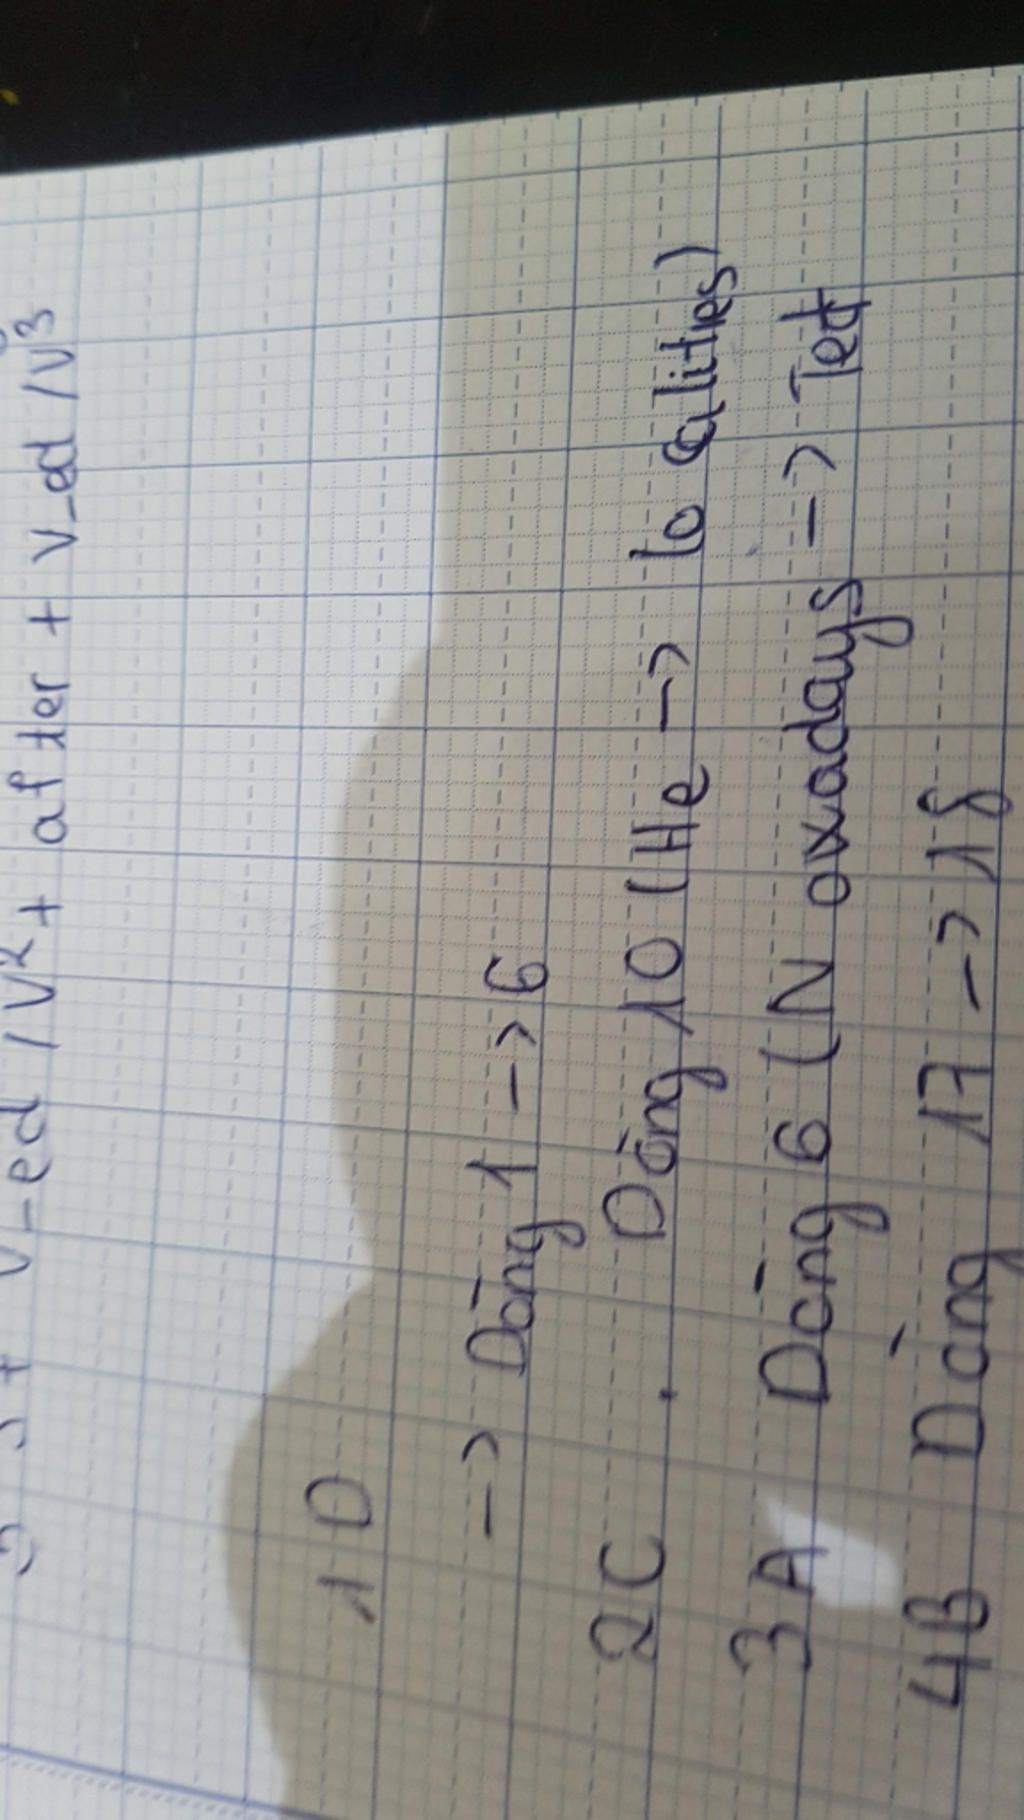 S + V-ed / V2 + after + V-ed / V3
1 D
-> Dòng 1 -> 6
2C . Dòng 10 (He -> lo alities)
3 A Dòng 6 (N owadays -> Tet
4B Dòng 17 -> 18